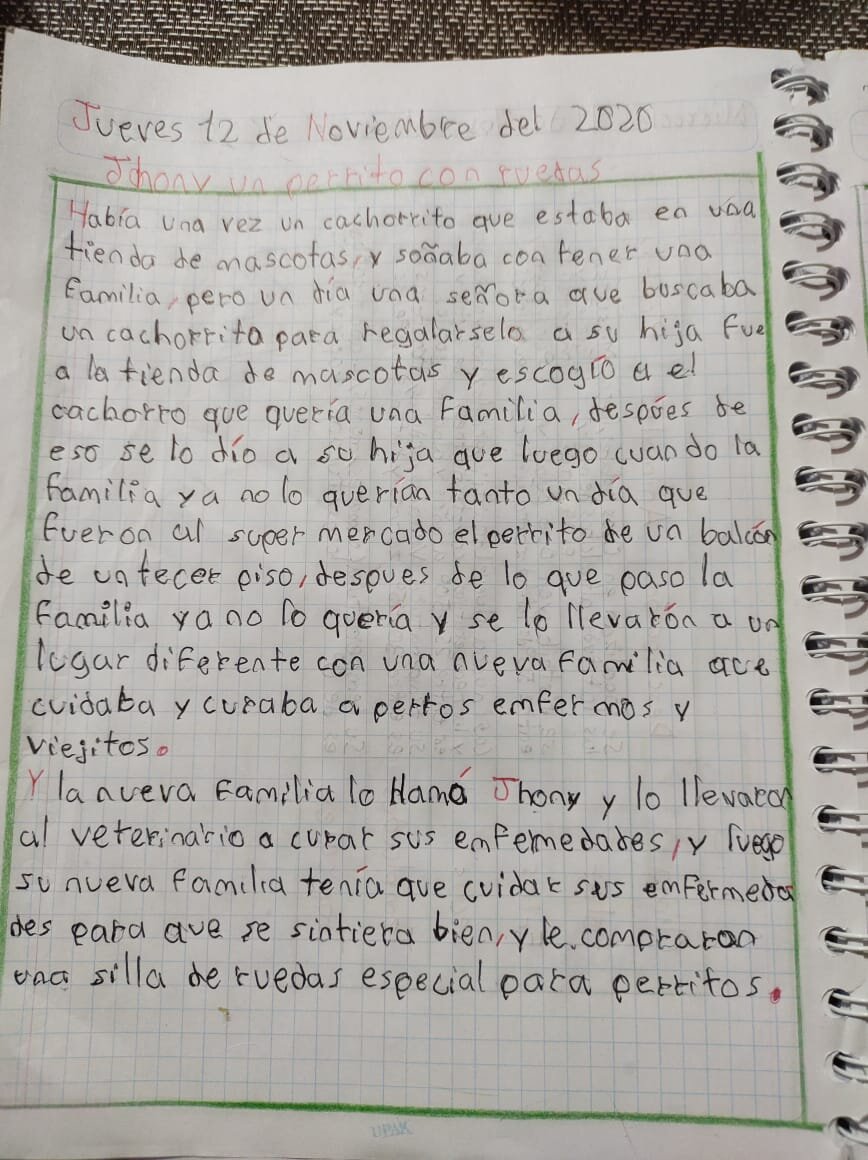 Jueves 12 de Noviembre del 2020
Jhony un perrito con ruedas
Había una vez un cachorrito que estaba en una
tienda de mascotas, y soñaba con tener una
familia, pero un día una señora que buscaba
un cachorrito para regalarselo a su hija fue
a la tienda de mascotas y escogió a el
cachorro que quería una familia, despúes de
eso se lo dío a su hija que luego cuando la
familia ya no lo querían tanto un día que
fueron al super mercado el perrito de un balcón
de un tecer piso, despues de lo que paso la
familia ya no lo quería y se lo llevarón a un
lugar diferente con una nueva familia que
cuidaba y curaba a perros enfermos y
viejitos.
Y la nueva familia lo llamó Jhony y lo llevaron
al veterinario a curar sus enfemedades, y luego
su nueva familia tenía que cuidar sus enfermeda
des para que se sintiera bien, y le compraron
una silla de ruedas especial para perritos.
UPAK